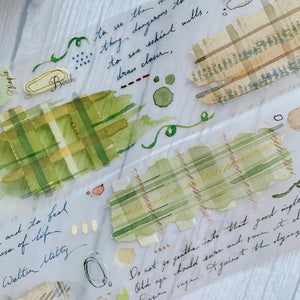 to see the w
they dangerous to
to see behind walls,
draw closer,
Birch
and to feel
ose of life.
Walter Mitty
Do not go gentle into that good nigh
Old age should burn and rave at c
Rage, rage against the dying